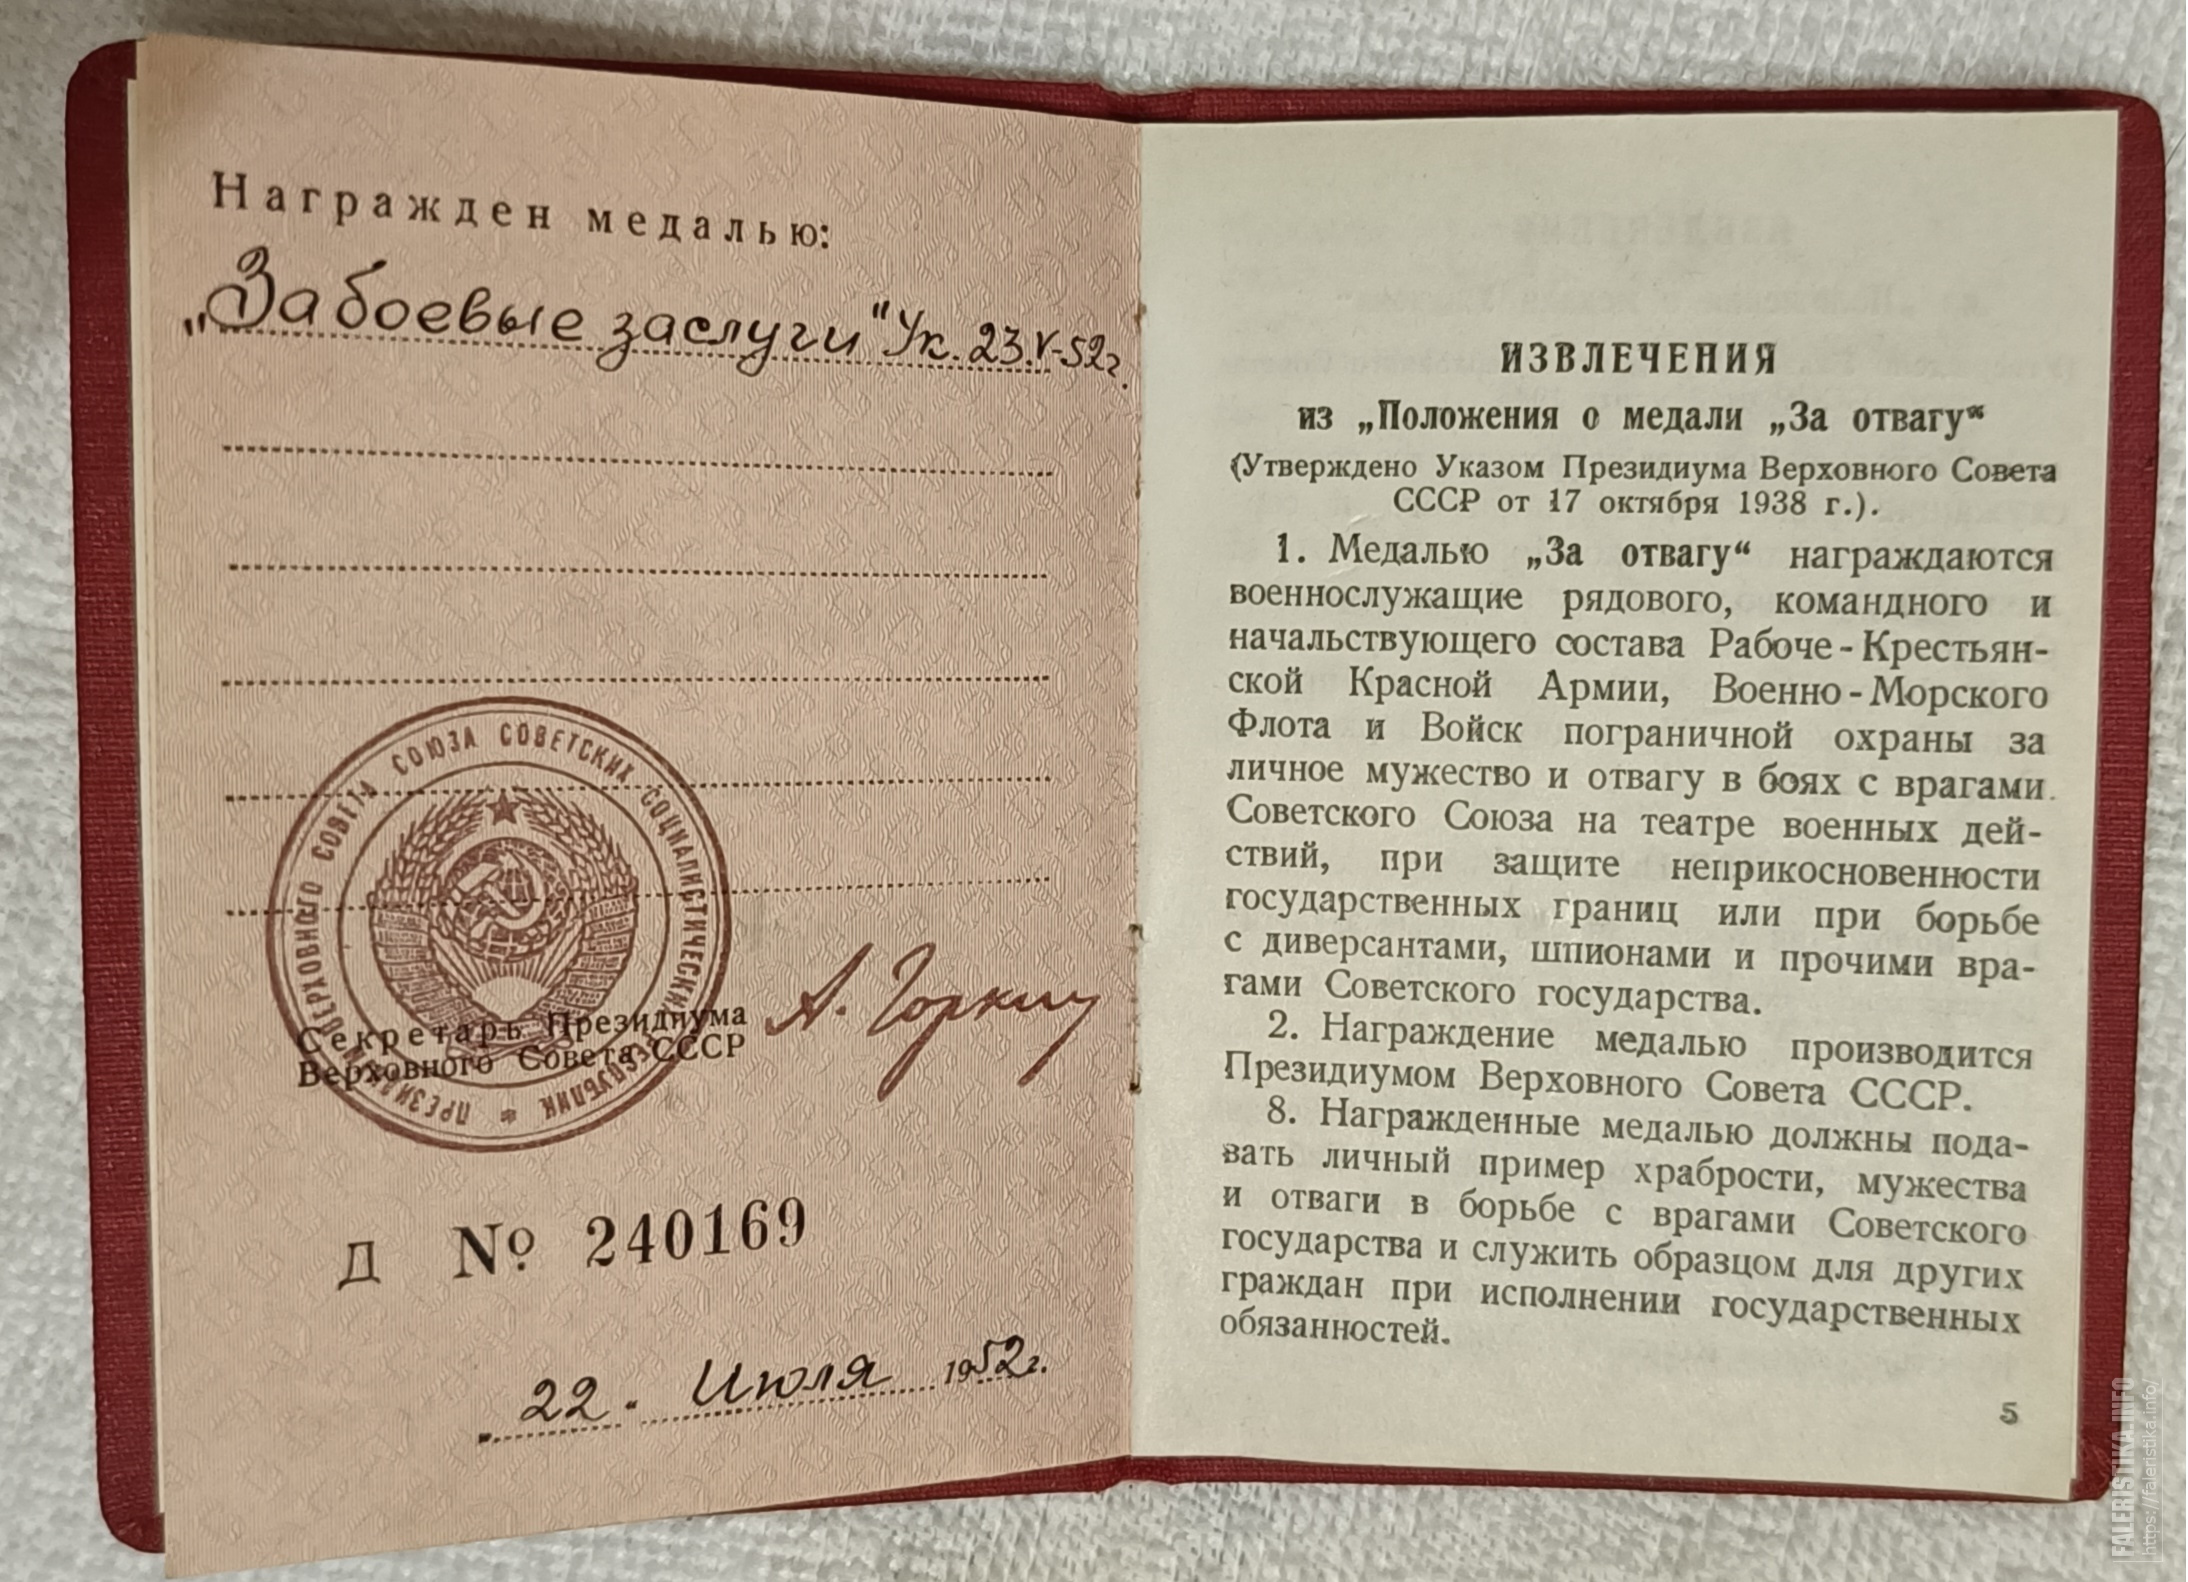 Награжден медалью:
„За боевые заслуги" Ук. 23.V-52г.
ПРЕЗИДИУМ ВЕРХОВНОГО СОВЕТА СОЮЗА СОВЕТСКИХ СОЦИАЛИСТИЧЕСКИХ РЕСПУБЛИК *
Секретарь Президиума
Верховного Совета СССР
А. Горкин
Д № 240169
„22" Июля 1952г.
ИЗВЛЕЧЕНИЯ
из „Положения о медали „За отвагу“
(Утверждено Указом Президиума Верховного Совета
СССР от 17 октября 1938 г.).
1. Медалью „За отвагу“ награждаются
военнослужащие рядового, командного и
начальствующего состава Рабоче-Крестьян-
ской Красной Армии, Военно-Морского
Флота и Войск пограничной охраны за
личное мужество и отвагу в боях с врагами
Советского Союза на театре военных дей-
ствий, при защите неприкосновенности
государственных границ или при борьбе
с диверсантами, шпионами и прочими вра-
гами Советского государства.
2. Награждение медалью производится
Президиумом Верховного Совета СССР.
8. Награжденные медалью должны пода-
вать личный пример храбрости, мужества
и отваги в борьбе с врагами Советского
государства и служить образцом для других
граждан при исполнении государственных
обязанностей.
5
FALERISTIKA.INFO
https://faleristika.info/